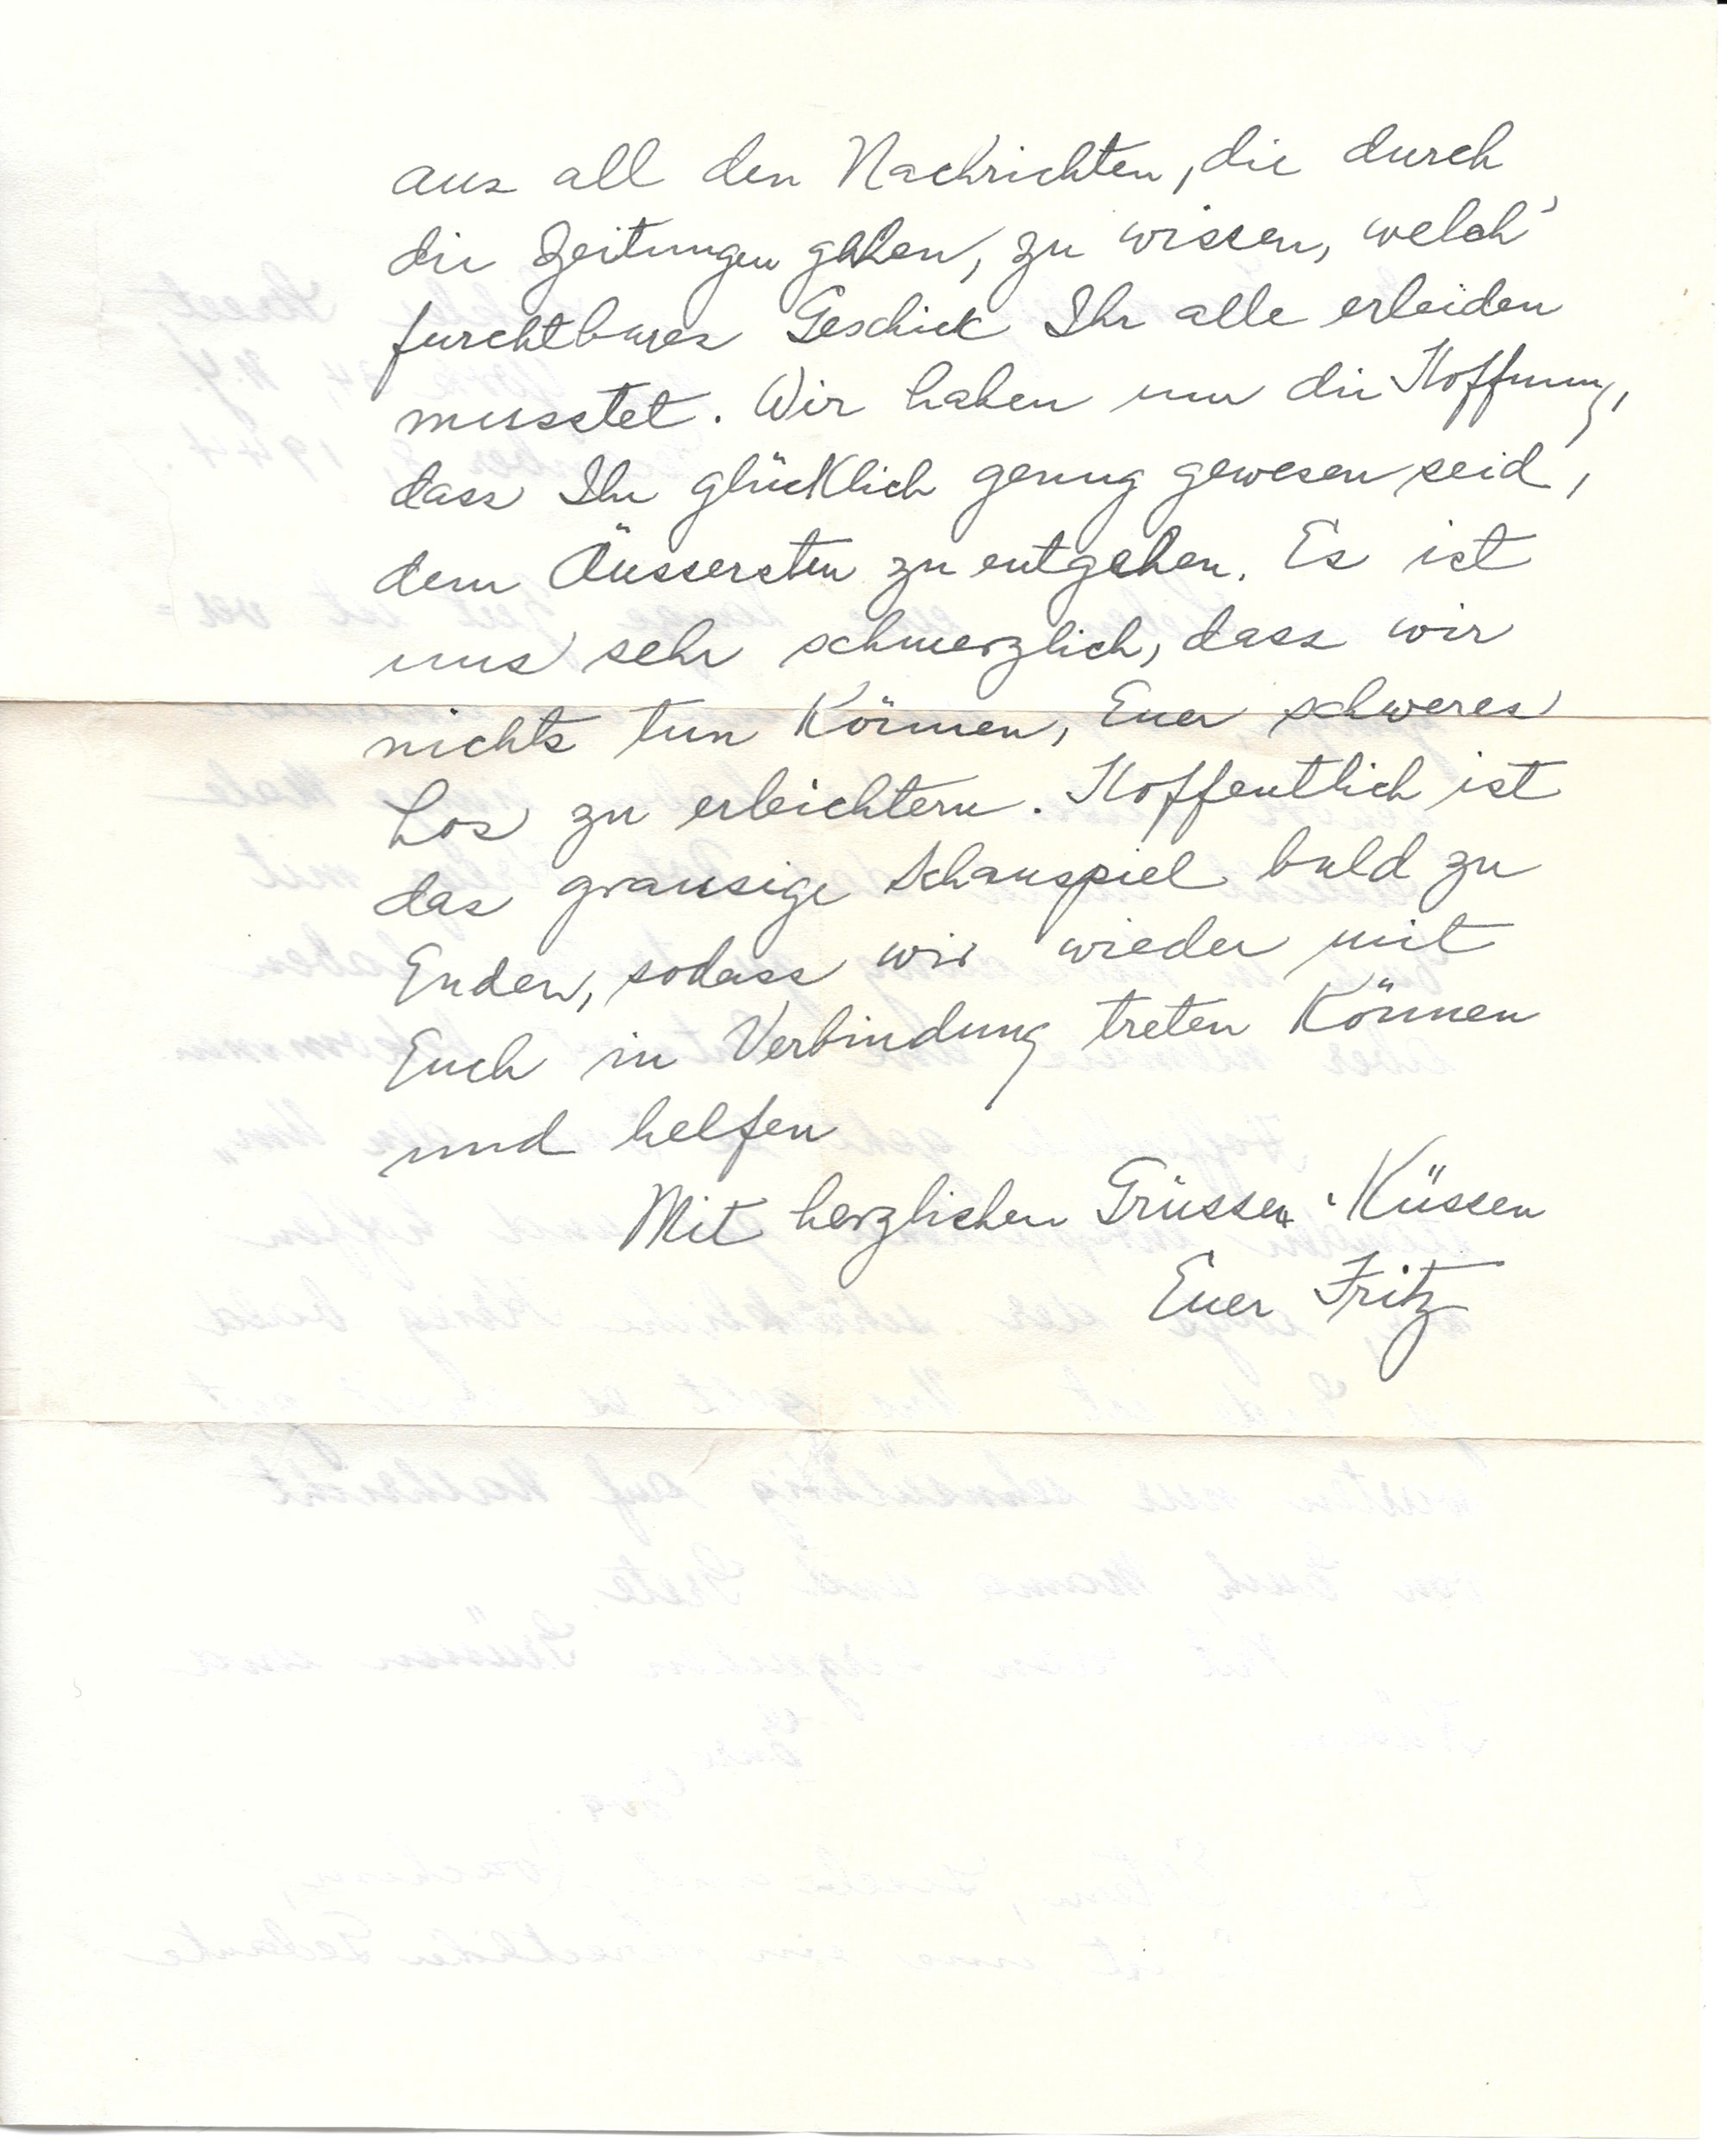 aus all den Nachrichten, die durch
die Zeitungen gehen, zu wissen, welch'
furchtbares Geschick Ihr alle erleiden
musstet. Wir haben nur die Hoffnung,
dass Ihr glücklich genug gewesen seid,
dem Äussersten zu entgehen. Es ist
uns sehr schmerzlich, dass wir
nichts tun können, Euer schweres
Los zu erleichtern. Hoffentlich ist
das grausige Schauspiel bald zu
Enden, sodass wir wieder mit
Euch in Verbindung treten können
und helfen
Mit herzlichen Grüssen Küssen
Euer Fritz